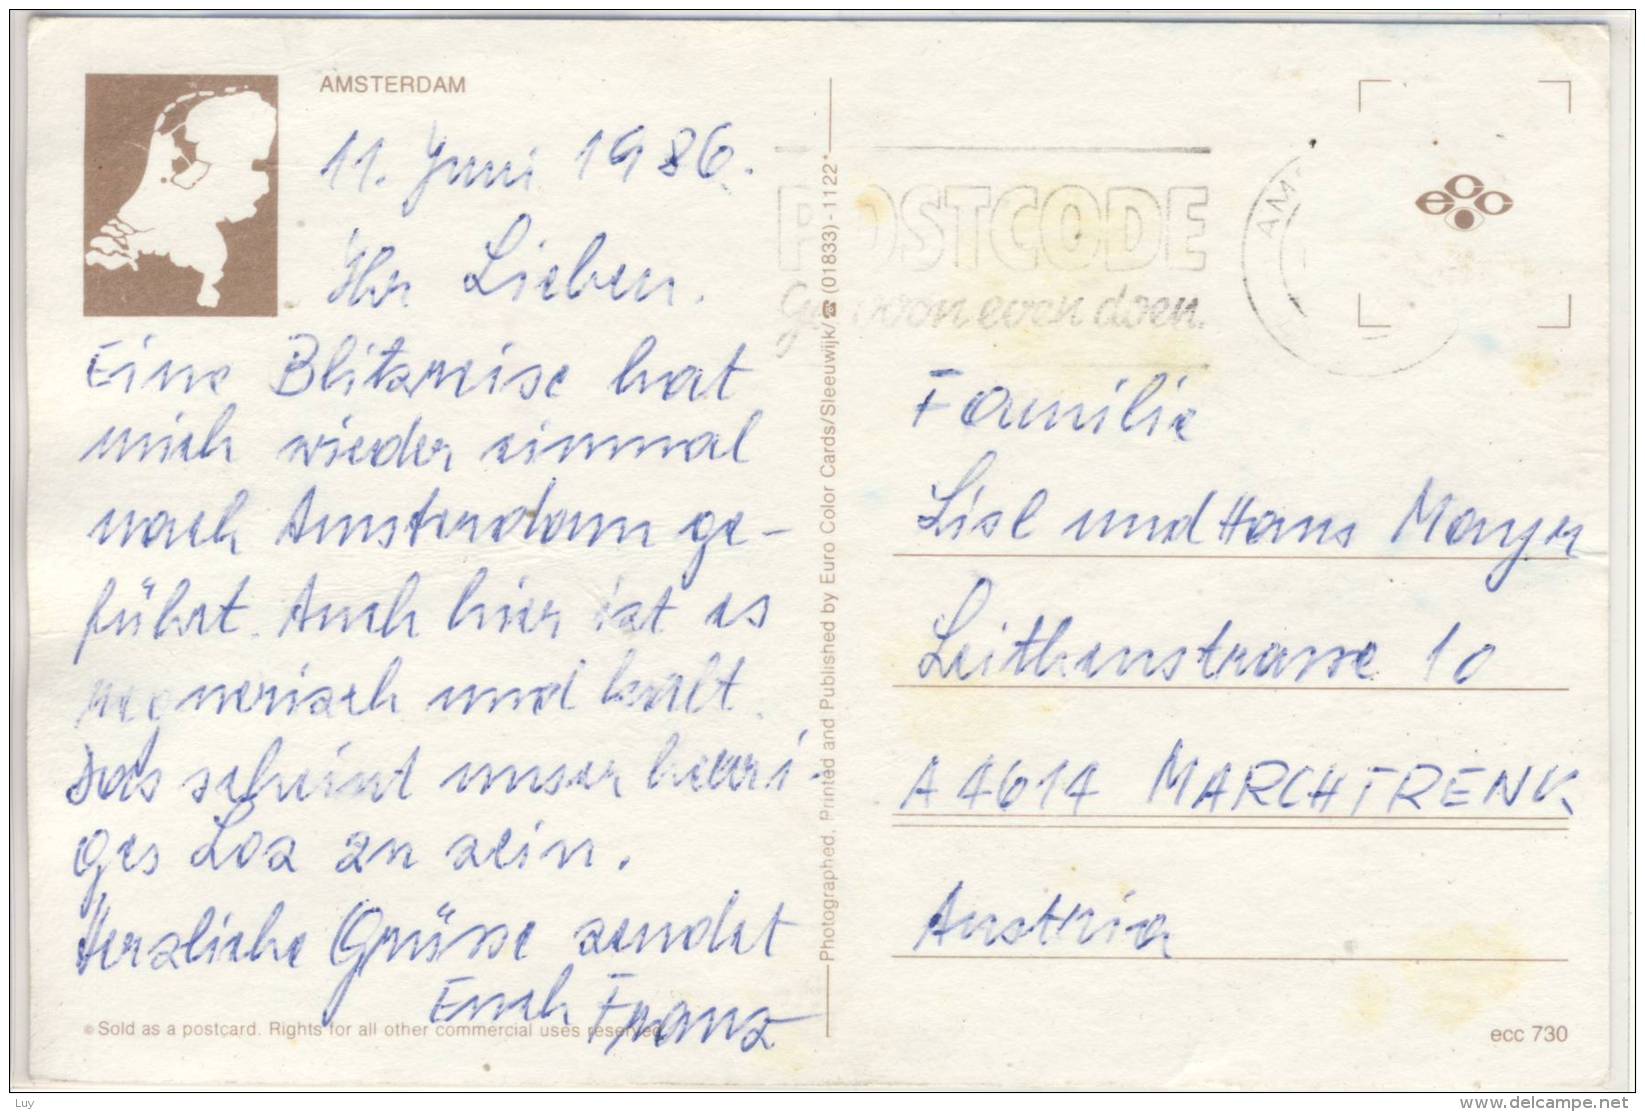 AMSTERDAM
11. Juni 1986.
Ihr Lieben.
Eine Blitzreise hat
mich wieder einmal
nach Amsterdam ge-
führt. Auch hier ist es
regnerisch und kalt.
Das scheint unser heuri-
ges Los zu sein.
Herzliche Grüsse sendet
Euch Franz
© Sold as a postcard. Rights for all other commercial uses reserved.
Photographed, Printed and Published by Euro Color Cards/Sleeuwijk/☎ (01833) - 1122*
POSTCODE
Gewoon even doen.
AM
ecc
Familie
Lisl und Hans Mayr
Leithenstrasse 10
A 4614 MARCHTRENK
Austria
ecc 730
Luy
delcampe.net